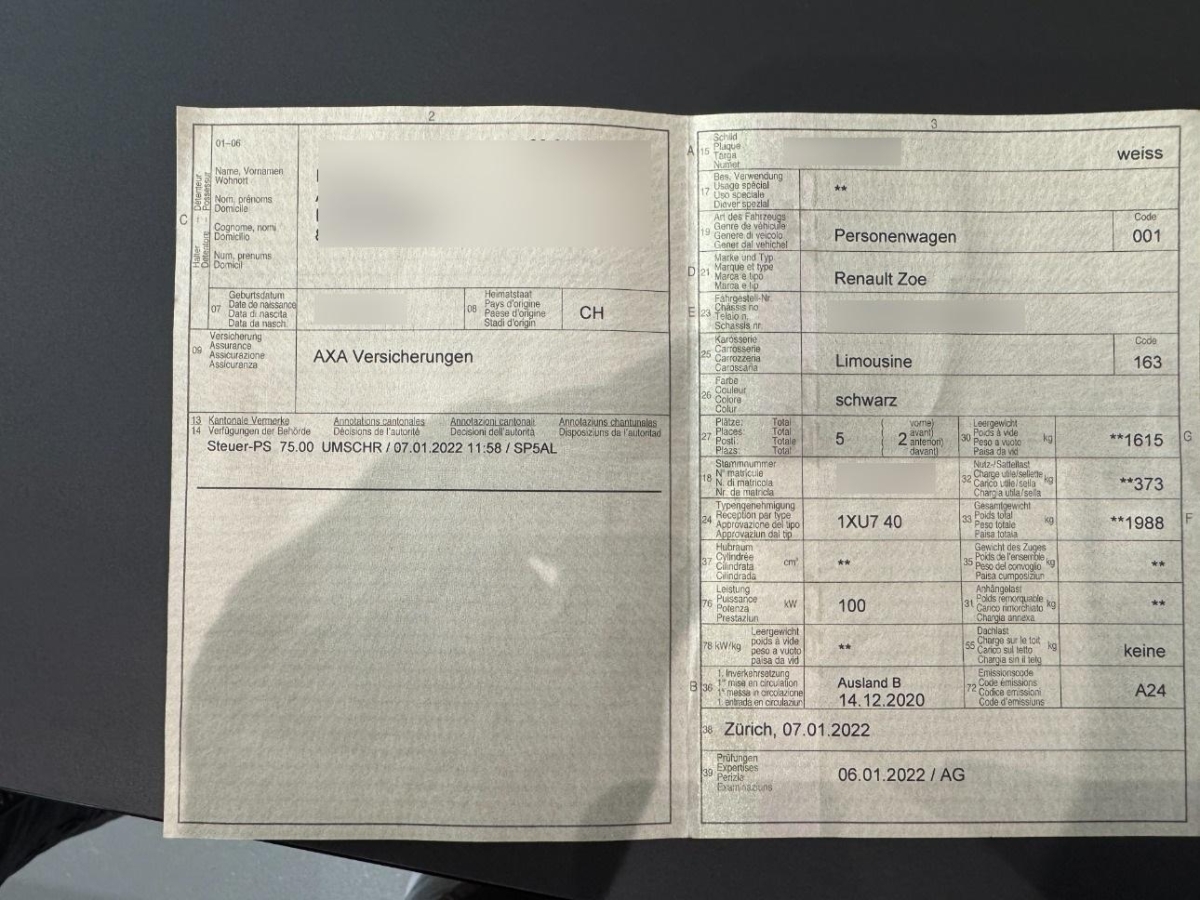 2
01–06
Name, Vornamen
Wohnort
Nom, prénoms
Domicile
Cognome, nomi
Domicilio
Num, prenums
Domicil
C
Halter – Détenteur
Detentore – Possessur
07
Geburtsdatum
Date de naissance
Data di nascita
Data da nasch.
08
Heimatstaat
Pays d'origine
Paese d'origine
Stadi d'origin
CH
09
Versicherung
Assurance
Assicurazione
Assicuranza
AXA Versicherungen
13 Kantonale Vermerke Annotations cantonales Annotazioni cantonali Annotaziuns chantunalas
14 Verfügungen der Behörde Décisions de l'autorité Decisioni dell'autorità Disposiziuns da l'autoritad
Steuer-PS 75.00 UMSCHR / 07.01.2022 11:58 / SP5AL
3
A 15
Schild
Plaque
Targa
Numer
weiss
17
Bes. Verwendung
Usage spécial
Uso speciale
Diever spezial
**
19
Art des Fahrzeugs
Genre de véhicule
Genere di veicolo
Gener dal vehichel
Personenwagen
Code
001
D 21
Marke und Typ
Marque et type
Marca e tipo
Marca e tip
Renault Zoe
E 23
Fahrgestell-Nr.
Châssis no
Telaio n.
Schassis nr.
25
Karosserie
Carrosserie
Carrozzeria
Carossaria
Limousine
Code
163
26
Farbe
Couleur
Colore
Colur
schwarz
27
Plätze: Total
Places: Total
Posti: Totale
Plazs: Total
5
2
vorne)
avant)
anteriori)
davant)
30
Leergewicht
Poids à vide
Peso a vuoto
Paisa da vid
kg
**1615
G
18
Stammnummer
N° matricule
N. di matricola
Nr. da matricla
32
Nutz-/Sattellast
Charge utile/sellette
Carico utile/sella
Chargia utila/sella
kg
**373
24
Typengenehmigung
Réception par type
Approvazione del tipo
Approvaziun dal tip
1XU7 40
33
Gesamtgewicht
Poids total
Peso totale
Paisa totala
kg
**1988
F
37
Hubraum
Cylindrée
Cilindrata
Cilindrada
cm³
**
35
Gewicht des Zuges
Poids de l'ensemble
Peso del convoglio
Paisa cumposiziun
kg
**
76
Leistung
Puissance
Potenza
Prestaziun
kW
100
31
Anhängelast
Poids remorquable
Carico rimorchiato
Chargia annexa
kg
**
78 kW/kg
Leergewicht
poids à vide
peso a vuoto
paisa da vid
**
55
Dachlast
Charge sur le toit
Carico sul tetto
Chargia sin il tetg
kg
keine
B 36
1. Inverkehrsetzung
1re mise en circulation
1a messa in circolazione
1. entrada en circulaziun
Ausland B
14.12.2020
72
Emissionscode
Code émissions
Codice emissioni
Code d'emissiuns
A24
38 Zürich, 07.01.2022
39
Prüfungen
Expertises
Perizie
Examinaziuns
06.01.2022 / AG